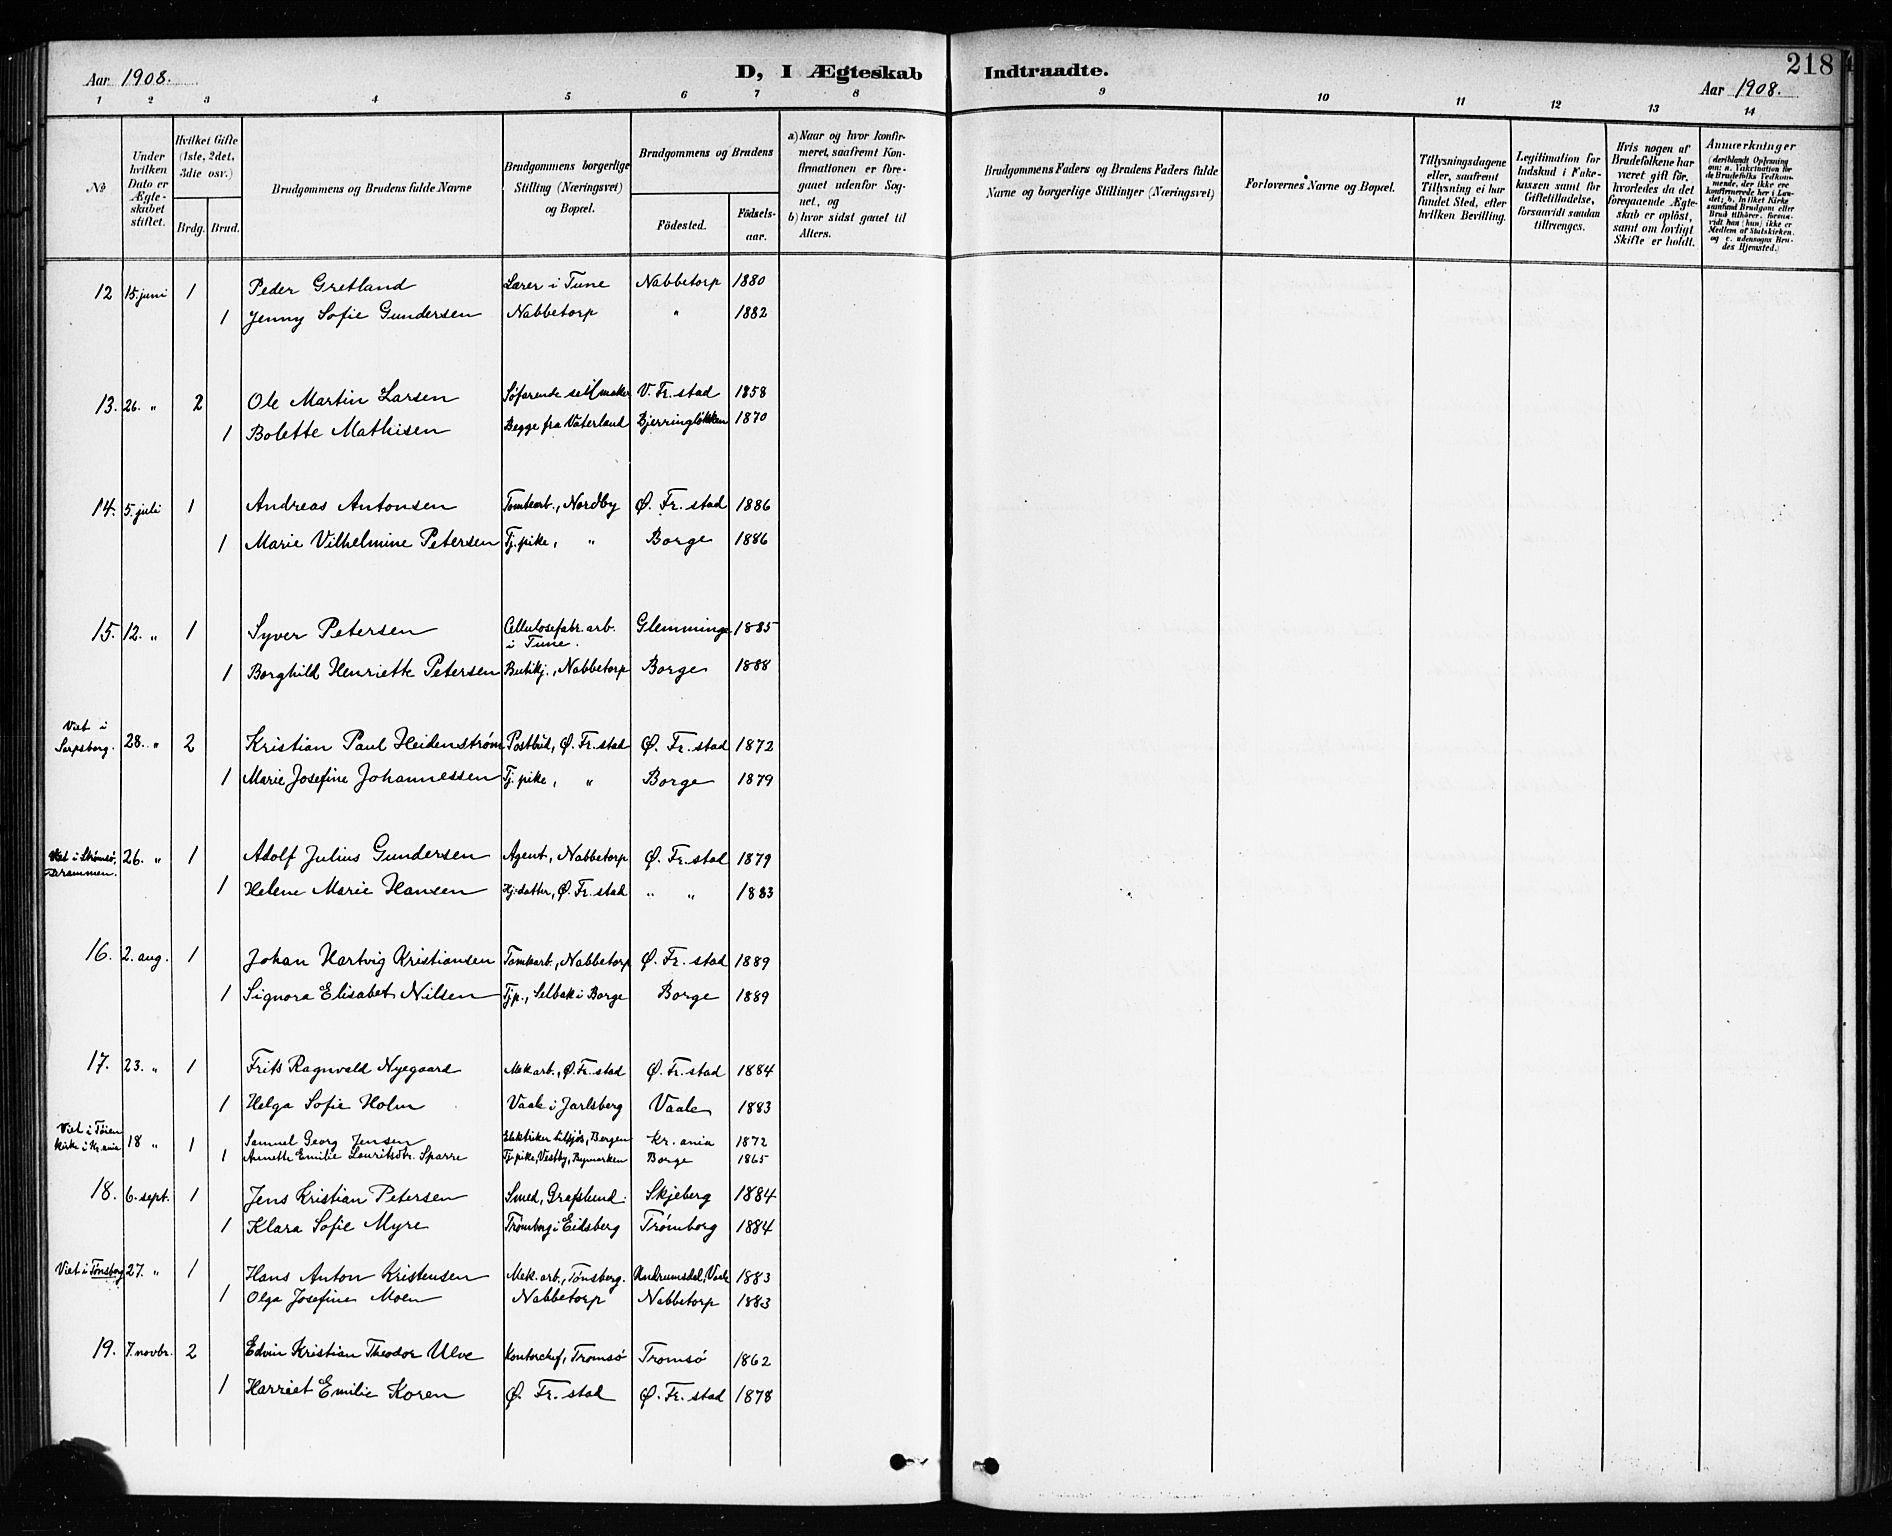 218
Aar 1908.
D, I Ægteskab Indtraadte.
Aar 1908.
1 2 3 4 5 6 7 8 9 10 11 12 13 14
No
Under hvilken Dato er Ægteskabet stiftet.
Hvilket Gifte (1ste, 2det, 3die osv.)
Brdg. Brud.
Brudgommens og Brudens fulde Navne
Brudgommens borgerlige Stilling (Næringsvei) og Bopæl.
Brudgommens og Brudens
Födested.
Födsels-aar.
a) Naar og hvor konfirmeret, saafremt Konfirmationen er foregaaet udenfor Sognet, og
b) hvor sidst gaaet til Alters.
Brudgommens Faders og Brudens Faders fulde Navne og borgerlige Stillinger (Næringsvei)
Forlovernes Navne og Bopæl.
Tillysningsdagene eller, saafremt Tillysning ei har fundet Sted, efter hvilken Bevilling.
Legitimation for Indskud i Enkekassen samt for Giftetilladelse, forsaavidt saadan tiltrænges.
Hvis nogen af Brudefolkene har været gift för, hvorledes da det foregaaende Ægteskab er oplöst, samt om lovligt Skifte er holdt.
Anmærkninger
12 15. juni 1 Peder Gretland Lærer i Tune Nabbetorp 1880
1 Jenny Sofie Gundersen Nabbetorp " 1882
13. 26. " 2 Ole Martin Larsen Søfarende seilmaker V. Fr.stad 1858
1 Bolette Mathisen Begge fra Vaterland Bjerringløkken 1870
14. 5. juli 1 Andreas Antonsen Tomtearb., Nordby Ø. Fr.stad 1886
1 Marie Vilhelmine Petersen Tj.pike, " Borge 1886
15. 12. " 1 Syver Petersen Cellulosefabr.arb. i Tune. Glemminge 1885
1 Borghild Henriette Petersen Butikj., Nabbetorp Borge 1888
Viet i Sarpsborg. 28. " 2 Kristian Paul Heidenstrøm Postbud, Ø. Fr.stad Ø. Fr.stad 1872
1 Marie Josefine Johannessen Tj.pike, " Borge 1879
Viet i Strømsø, Drammen. 26. " 1 Adolf Julius Gundersen Agent, Nabbetorp Ø. Fr.stad 1879
1 Helene Marie Hansen Hj.datter, Ø. Fr.stad " " 1883
16. 2. aug. 1 Johan Hartvig Kristiansen Tomtearb., Nabbetorp Ø. Fr.stad 1889
1 Signora Elisabet Nilsen Tj.p., Selbak i Borge Borge 1889
17. 23. " 1 Frits Ragnvald Nyegaard Mek.arb., Ø. Fr.stad Ø. Fr.stad 1884
1 Helga Sofie Holm Vaale i Jarlsberg Vaale 1883
Viet i Tøien kirke i Kr.ania 18 " 1 Samuel Georg Jensen Elektriker tilsjøs, Bergen Kr.ania 1872
1 Annette Emilie Lauritsdtr. Sparre Tj.pike, Vestby, Bymarken Borge 1865
18. 6. sept. 1 Jens Kristian Petersen Smed, Grafslund. Skjeberg 1884
1 Klara Sofie Myre Trømborg i Eidsberg Trømborg 1884
Viet i Tønsberg 27. " 1 Hans Anton Kristensen Mek.arb., Tønsberg. Undrumsdal, Vaale 1883
1 Olga Josefine Moen Nabbetorp Nabbetorp 1883
19. 7. novbr. 2 Edvin Kristian Theodor Ulve Kontorchef, Tromsø Tromsø 1862
1 Harriet Emilie Koren Ø. Fr.stad Ø. Fr.stad 1878